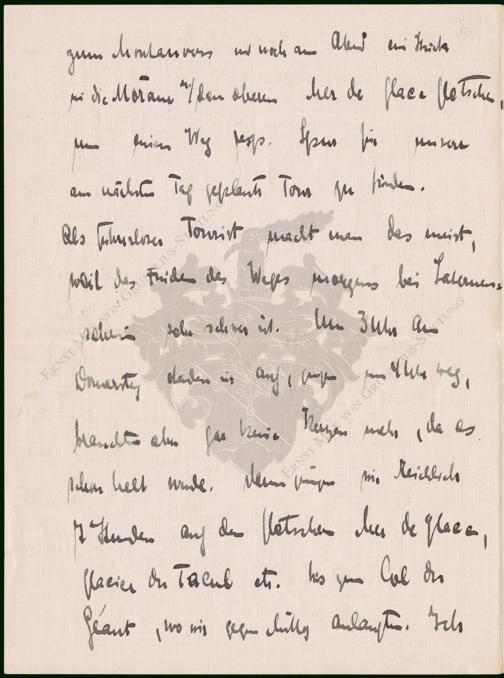 zum Montanvers und noch am Abend ein Stück
in die Moräne des oberen Mer de glace Gletscher,
um einen Weg resp. Spur für unsere
am nächsten Tag geplante Tour zu finden.
Als führerloser Tourist macht man das meist,
weil das Finden des Weges morgens bei Laternen=
schein sehr schwer ist. Um 3 Uhr am
Donnerstag standen wir auf, gingen um 4 Uhr weg,
brauchten aber gar keine Kerzen mehr, da es
schon hell wurde. Dann gingen wir reichlich
7 Stunden auf dem Gletscher Mer de glace,
glacier du Tacul etc. bis zum Col du
Géant, wo wir gegen Mittag anlangten. Ich
ERNST MORITZ VON GRUNELIUS-STIFTUNG